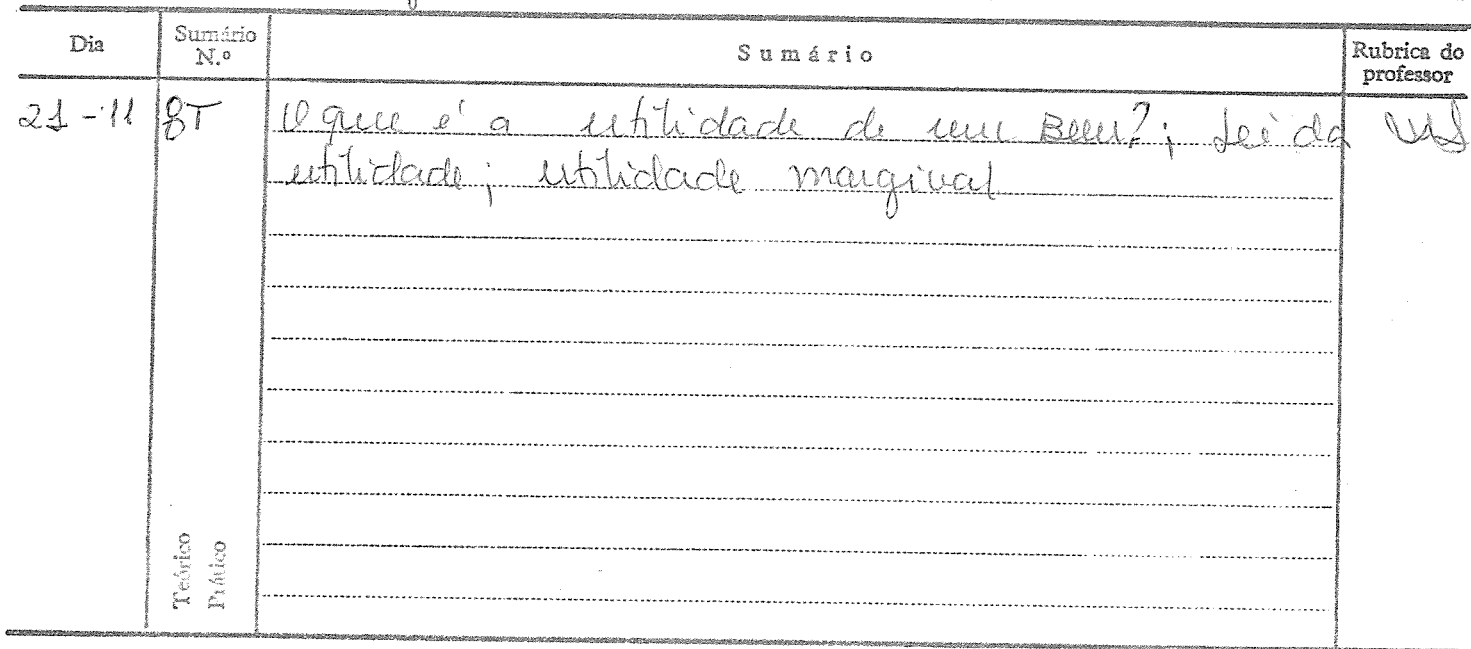 Dia Sumário N.º Sumário Rubrica do professor
21-11 8T O que é a utilidade de um Bem?; Lei da
utilidade; utilidade marginal
Teórico
Prático